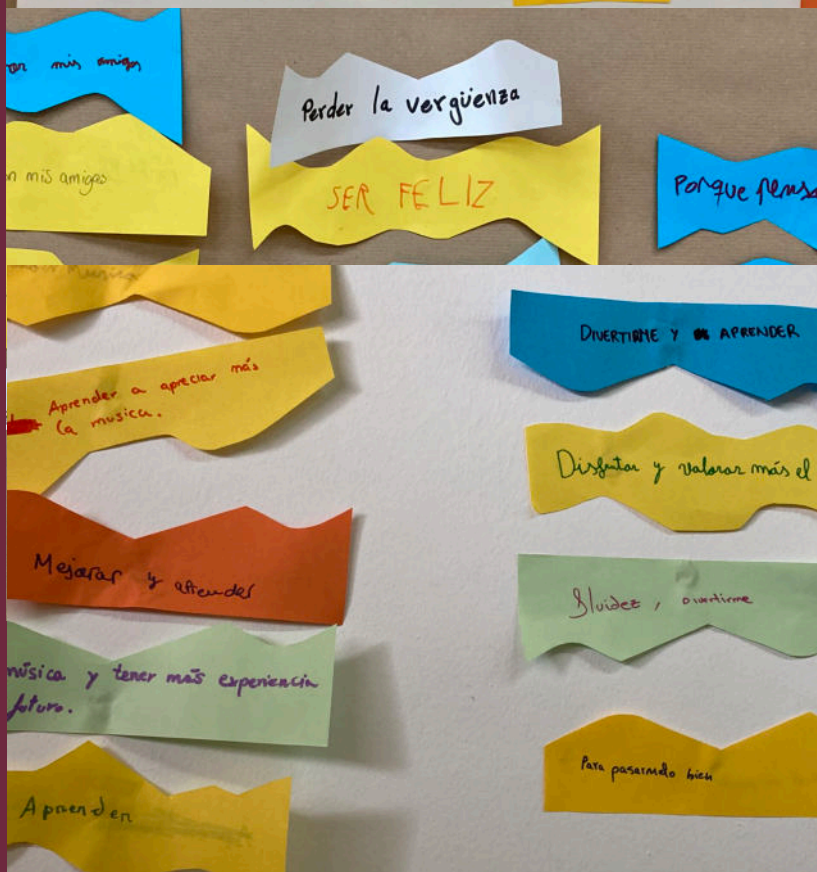 mis amigos
Perder la vergüenza
n mis amigos
SER FELIZ
Porque pensa
musica
Aprender a apreciar más
la musica.
Mejorar y aprender
música y tener más experiencia
futuro.
Aprender
DIVERTIRME Y APRENDER
Disfrutar y valorar más el
fluidez, divertirme
Para pasarmelo bien